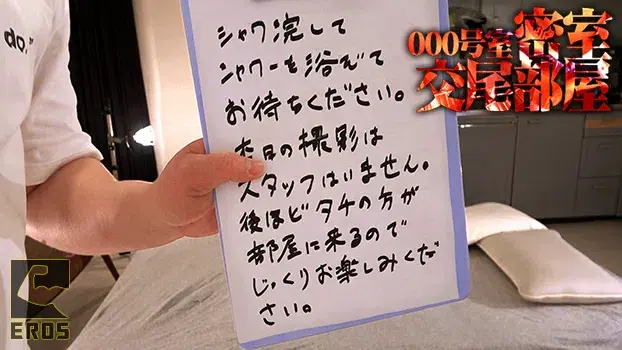 000号室 密室
交尾部屋
do.
シャワ浣して
シャワーも浴びて
お待ちください。
本日の撮影は
スタッフはいません。
後ほどタチの方が
部屋に来るので
じっくりお楽しみくだ
さい。
EROS